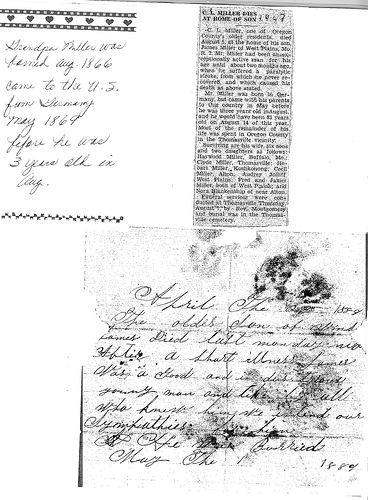 Grandpa Miller was
borned Aug. 1866
come to the U.S.
from Germany
May 1869
before he was
3 years old in
Aug.
C. L. MILLER DIES
AT HOME OF SON
C. L. Miller, one of Oregon
County's older residents, died
August 5, at the home of his son,
James Miller of West Plains, Mo.
R. 7. Mr. Miller had been unex-
ceptionally active man for his
age until about two months ago,
when he suffered a paralytic
stroke, from which he never re-
covered, and which caused his
death as above stated.
Mr. Miller was born in Ger-
many, but came with his parents
to this country in May before
he was three years old in August,
and he would have been 81 years
old on August 14 of this year.
Most of the remainder of his
life was spent in Oregon County
in the Thomasville vicinity.
Surviving are his wife, six sons
and two daughters as follows:
Haywood Miller, Buffalo, Mo.;
Clyde Miller, Thomasville; Ho-
bart Miller, Koshkonong; Cecil
Miller, Alton; Audrey
West Plains; Fred and James
Miller, both of West Plains; and
Nora Blankenship of near Alton.
Funeral services were con-
ducted at Thomasville Thursday,
August 7, by Rev. Montgomery
and burial was in the Thomas-
ville cemetery.
April The 188
The older Son of
James Died last monday
After a short illness James
Was a Good and
young man and all
Who knew him we extend our
Sympathies
He Was Burried
May The 1 188